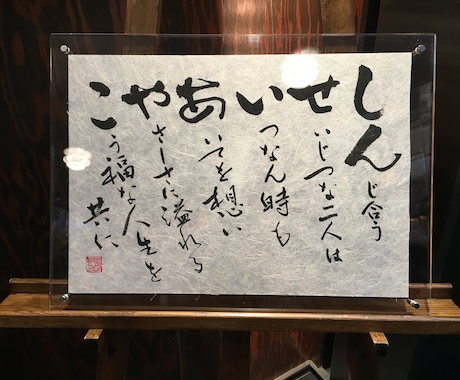 しんじ合う
せいじつな二人は
いつなん時も
あいてを想い
やさしさに溢れる
こう福な人生を
共に